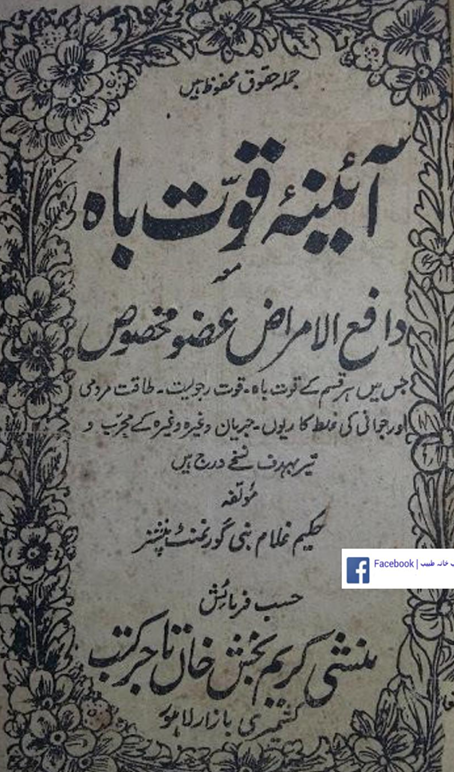 جملہ حقوق محفوظ ہیں
آئینۂ قوّت باہ
معہ
دافع الامراض عضو مخصوص
جس میں ہر قسم کے قوت باہ۔ قوت رجولیت۔ طاقت مردمی
اور جوانی کی غلط کاریوں۔ جریان وغیرہ وغیرہ کے مجرّب و
تیر بہدف نسخے درج ہیں
مؤلفہ
حکیم غلام نبی گورنمنٹ پنشنر
Facebook | خانہ طبیب
حسب فرمائش
منشی کریم بخش خاں تاجر کتب
کشمیری بازار لاہور